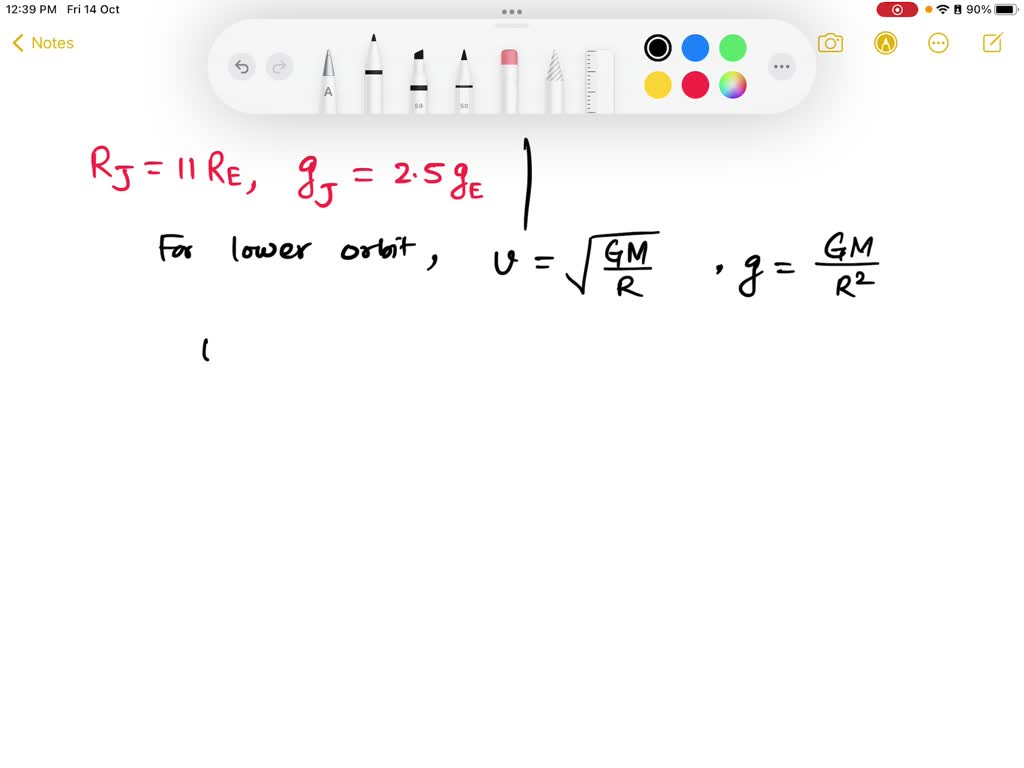 12:39 PM Fri 14 Oct 90%
Notes
A 59 50
R_J = 11 R_E, g_J = 2.5 g_E
For lower orbit, v = √(GM/R) . g = GM/R²
(